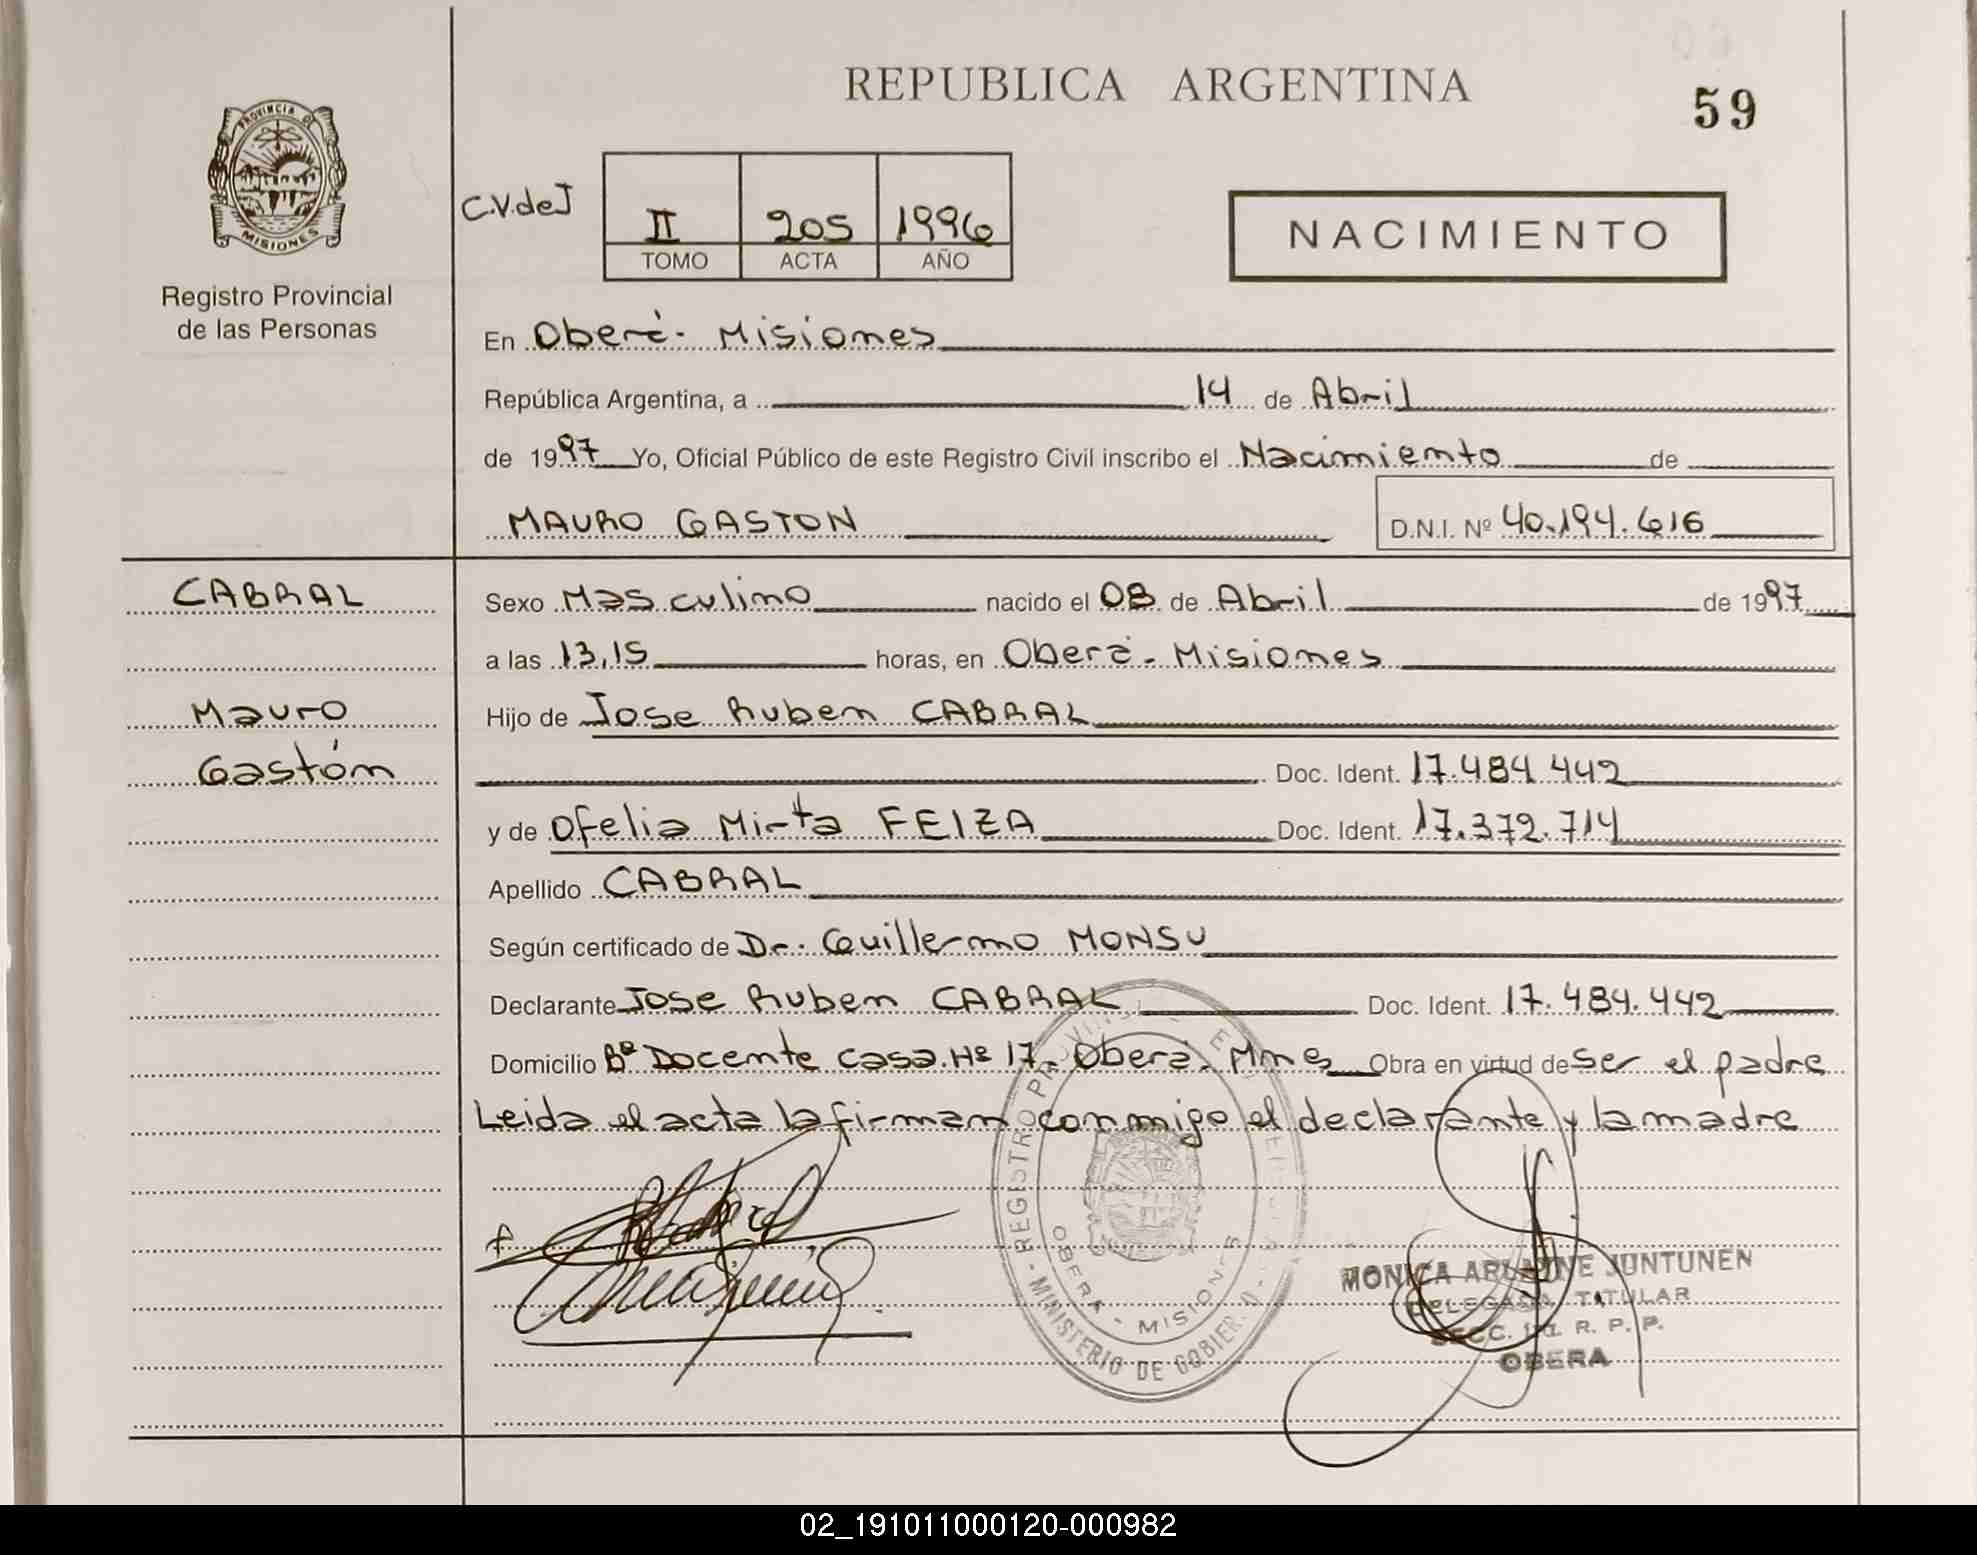 REPUBLICA ARGENTINA
59
PROVINCIA DE
MISIONES
Registro Provincial
de las Personas
C.V.deJ
II 205 1996
TOMO ACTA AÑO
NACIMIENTO
En Oberá- Misiones
República Argentina, a 14 de Abril
de 1997 Yo, Oficial Público de este Registro Civil inscribo el Nacimiento de
MAURO GASTON D.N.I. Nº 40.194.616
CABRAL
Mauro
Gastón
Sexo Masculino nacido el 08 de Abril de 1997
a las 13,15 horas, en Oberá- Misiones
Hijo de Jose Ruben CABRAL
Doc. Ident. 17.484.442
y de Ofelia Mirta FEIZA Doc. Ident. 17.372.714
Apellido CABRAL
Según certificado de Dr. Guillermo MONSU
Declarante Jose Ruben CABRAL Doc. Ident. 17.484.442
Domicilio Bº Docente Casa Nº 17- Oberá. Mnes Obra en virtud de ser el padre
Leida el acta la firman conmigo el declarante y la madre
REGISTRO PROVINCIAL
MINISTERIO DE GOBIERNO
OBERA - MISIONES
MONICA JUNTUNEN
DELEGADA TITULAR
SECC. R. P. P.
OBERA
02_191011000120-000982